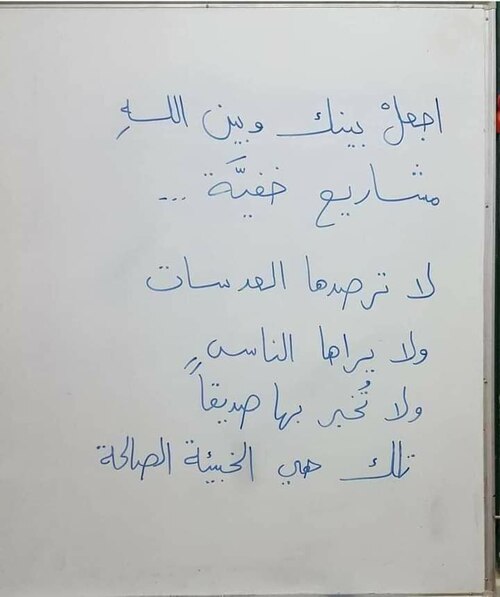 اجعلْ بينك وبين اللهِ
مشاريع خفيَّة ...
لا ترصدها العدسات
ولا يراها الناس
ولا تُخبر بها صديقاً
تلك هي الخبيئة الصالحة